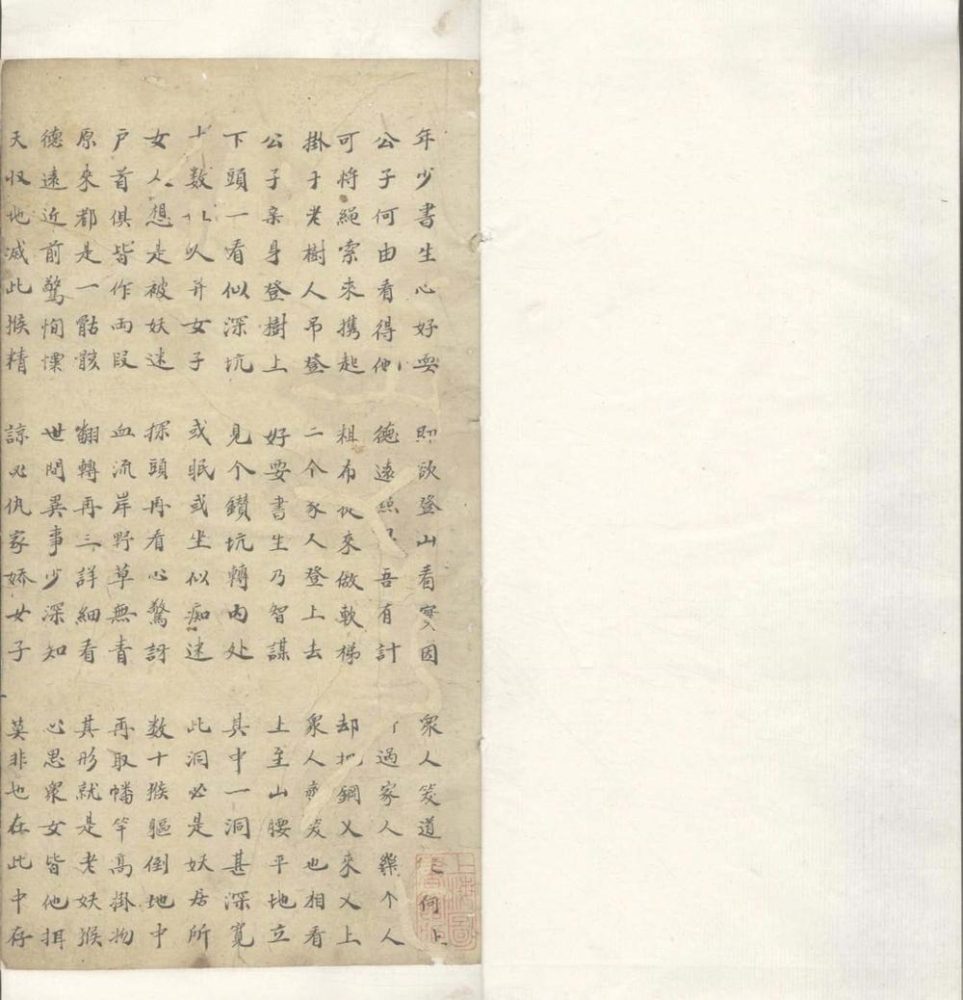 年少书生心好耍 即欲登山看實因 衆人笑道 何上
公子何由看得他 德遠 吾有計 过家人 个人
可将絕索来携起 粗布 来做軟梯 却 鋼叉来叉上
掛于老樹人吊登 二个家人登上去 衆人 笑也相看
公子亲身登樹上 好耍書生乃智謀 土至山腰平地立
下頭一看似深坑 見个鑚坑轉内处 其中一洞甚深寬
十数 人并女子 或眠或坐似痴迷 此洞必是妖居所
女人想是被妖迷 探頭再看心驚訝 数十猴軀倒地中
户首俱皆作両段 血流岸野草無青 再取幡竿高掛物
原來都是一骷骸 翻轉再三詳細看 其形就是老妖猴
德遠近前驚恂慄 世間異事少深知 心思衆女皆他拐
天收地滅此猴精 諒必仇家嬌女子 莫非也在此中存